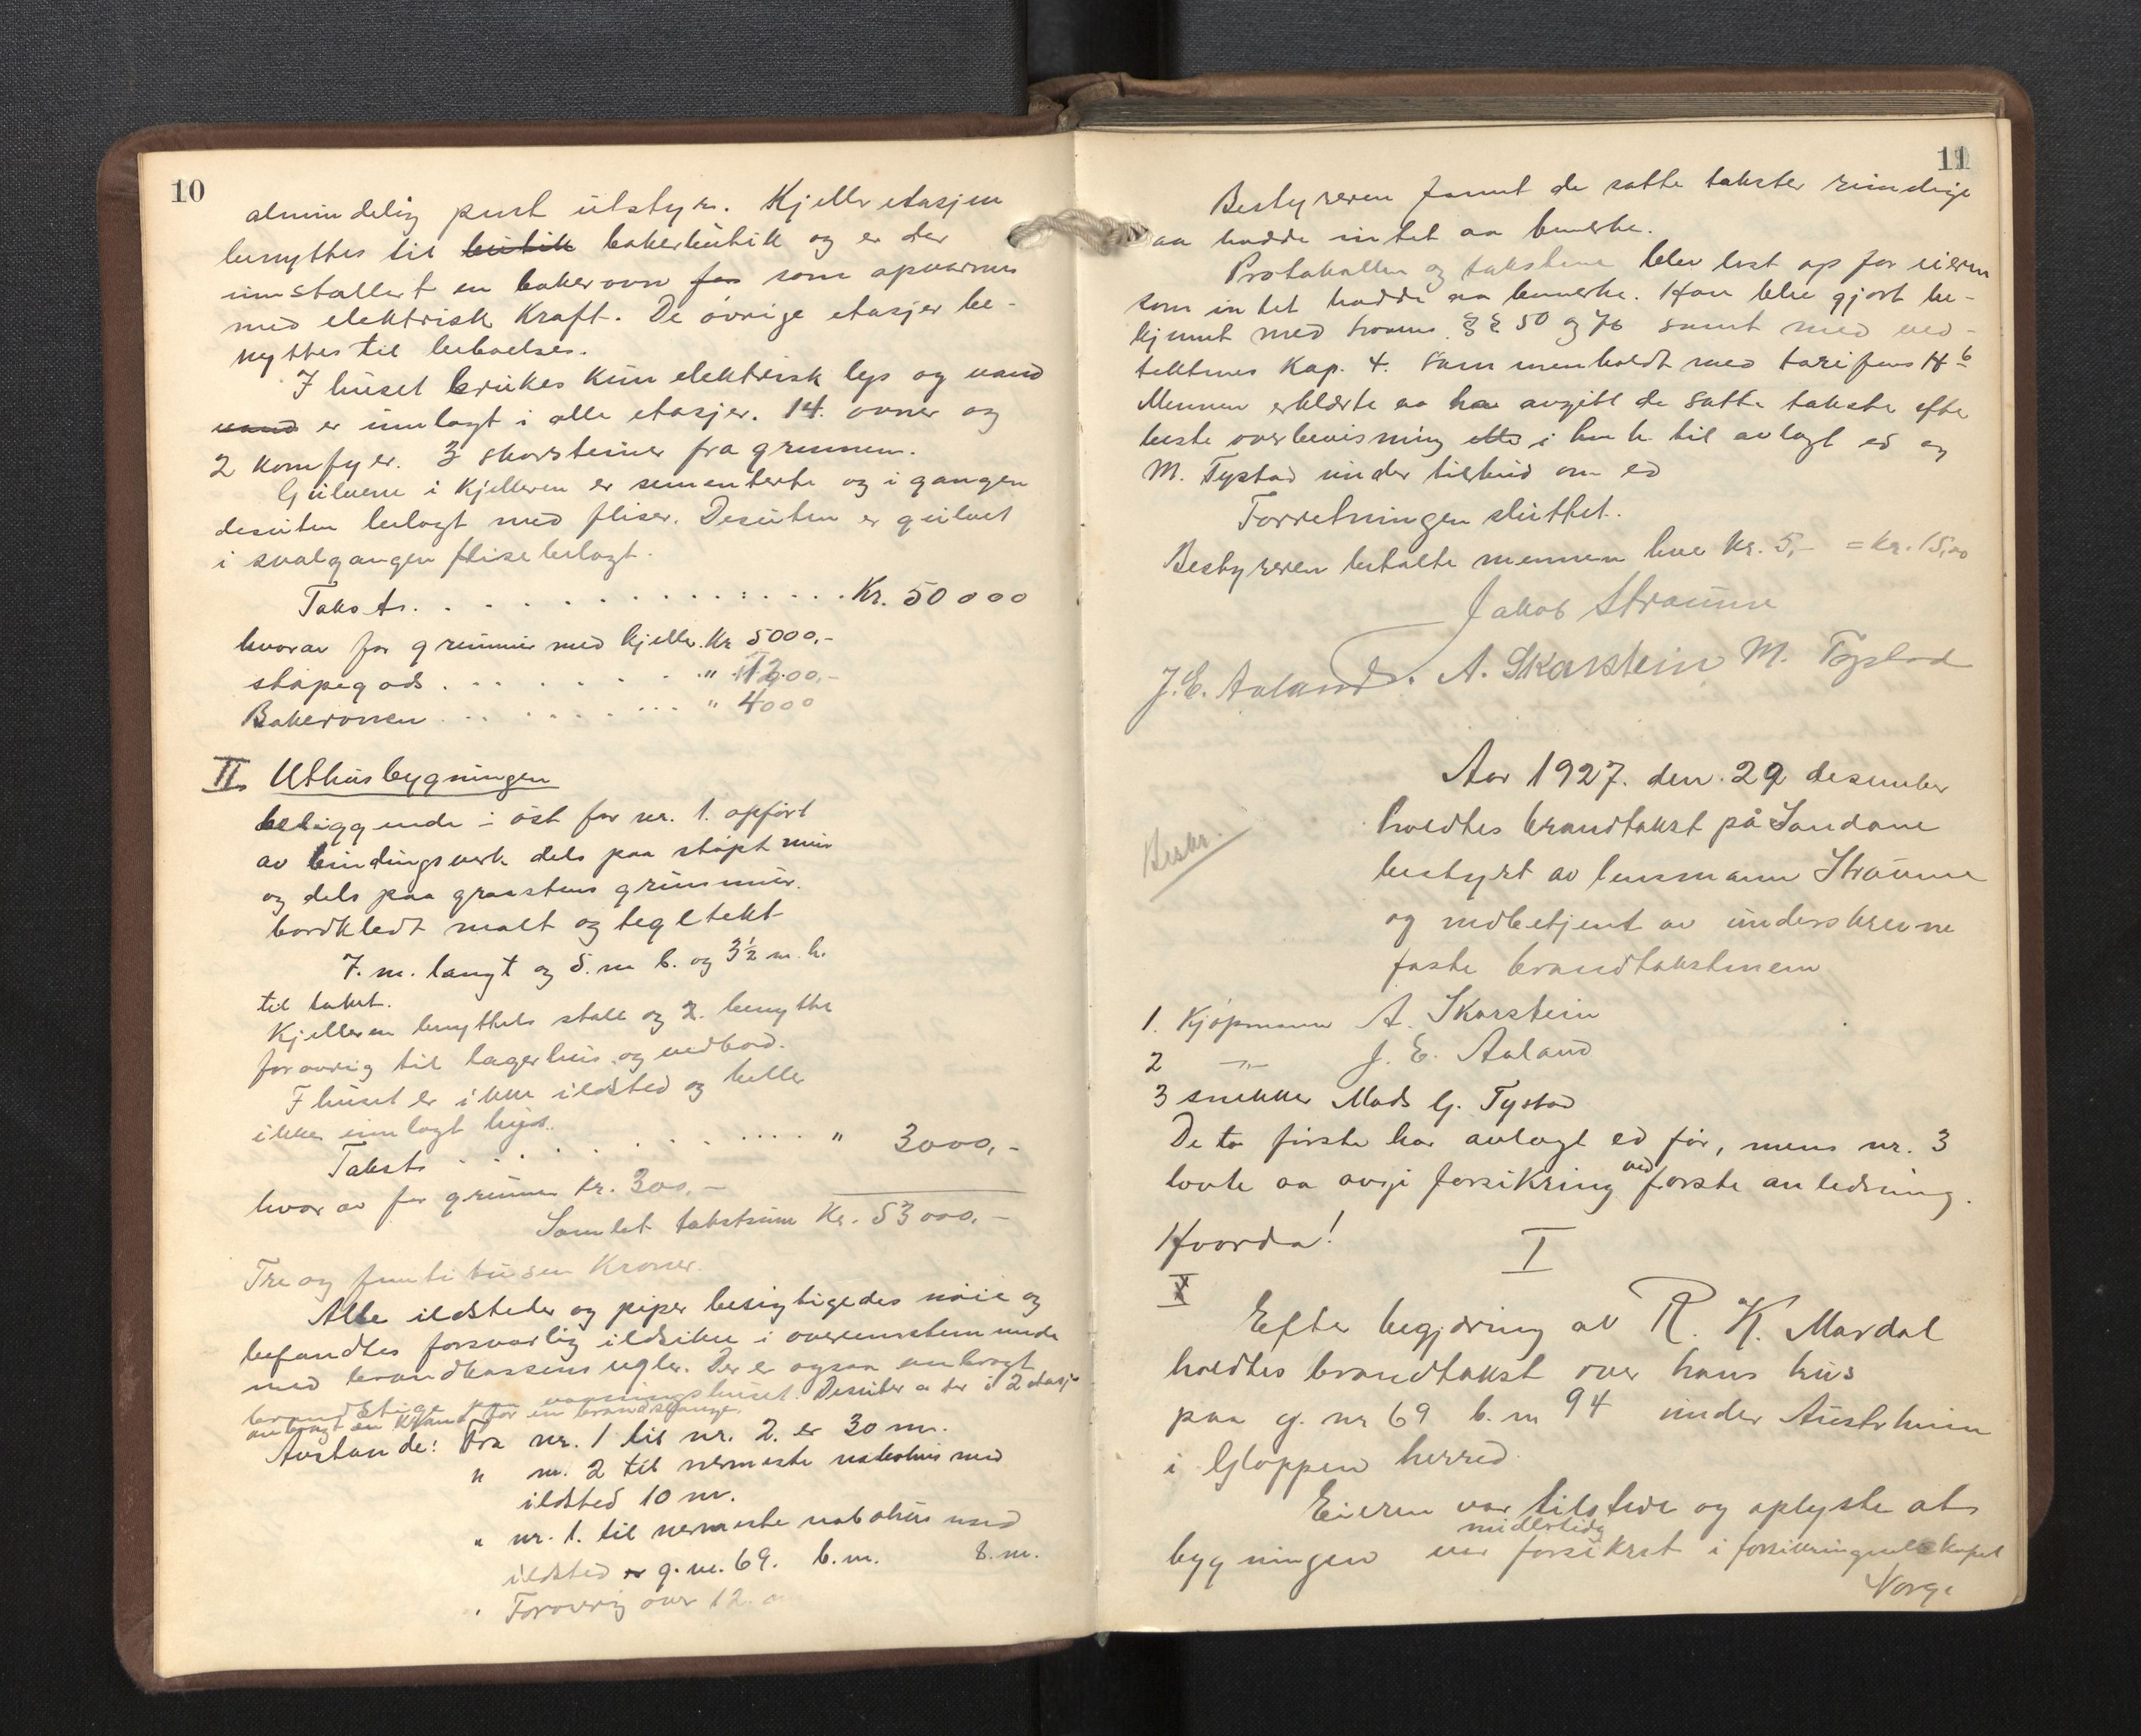 10
almindelig pent utstyr. Kjelleretasjen
benyttes til butik bakerbutik og er der
innstallert en bakerovn for som opvarmes
med elektrisk Kraft. De øvrige etasjer be-
nyttes til beboelse.
I huset brukes kun elektrisk lys og vand
vand er innlagt i alle etasjer. 14 ovner og
2 komfyer. 3 skorsteiner fra grunnen.
Gulvene i kjelleren er sementerte og i gangen
desuten belagt med fliser. Desuten er gulvet
i svalgangen flisebelagt.
Takst. . . . . . . . . . . . . . . . Kr. 50000
hvorav for grunnmur med kjeller. Kr 5000,-
støpegods . . . . . . . . " 1200,-
Bakerovnen . . . . . . . . " 4000
II. Uthusbygningen
beliggende i øst for nr. 1. opført
av bindingsverk dels paa støpt mur
og dels paa graastens grunnmur.
bordkledt malt og tegltekt
7. m. langt og 5. m b. og 3½ m. h.
til taket.
Kjelleren benyttes stall og 2. benyttes
forøvrig til lagerhus og vedbod.
I huset er ikke ildsted og heller
ikke innlagt lys.
Takst . . . . . . . . . . " 3000,-
hvorav for grunnmur kr. 300,-
Samlet takstsum Kr. 53000,-
Tre og femti tusen Kroner.
Alle ildsteder og piper besigtigedes nøie og
befandtes forsvarlig ildsikre i overensstemmende
med brandkassens regler. Der er ogsaa anbragt
brandstige paa vaaningshuset. Desuten er der i 2 etasje
anbragt en krane for en brandslange.
Avstande: Fra nr. 1 til nr. 2. er 30 m.
" nr. 2 til nermeste nabohus med
ildsted 10 m.
" nr. 1. til nermeste nabohus med
ildsted er g.nr. 69. b.nr. 8. m.
" Forøvrig over 12.
11
Bestyreren fannt de satte takster rimelige
aa hadde intet aa bemerke.
Protokollen og takstene blev lest op for eieren
som intet hadde aa bemerke. Han blev gjort be-
kjennt med lovens §§ 50 og 76 samt med ved-
tektenes Kap. 4. sammenholdt med tarifens H 6
Mennene erklærte aa ha avgitt de satte takster efter
beste overbevisning etter i hen h. til avlagt ed og
M. Tystad under tilbud om ed
Forretningen sluttet.
Bestyreren betalte mennene hver kr. 5,- = kr. 15,00
Jakob Straume
J. E. Aaland. A. Skarstein M. Tystad
Beskr.
Aar 1927. den 29 desember
holdtes brandtakst på Sandane
bestyrt av lensmann Straume
og medbetjent av underskrevne
faste brandtakstmenn
1. Kjøpmann A. Skarstein
2 -"- J. E. Aaland
3 snekker Mads G. Tystad
De to første har avlagt ed før, mens nr. 3
lovte aa avgi forsikring ved første anledning.
Hvorda!
I
Efter begjæring av R. K. Mardal
holdtes brandtakst over hans hus
paa g. nr 69 b. nr 94 under Austrheim
i Gloppen herred.
Eieren var tilstede og oplyste at
bygningen var midlertidig forsikret i forsikringsselskapet
Norge